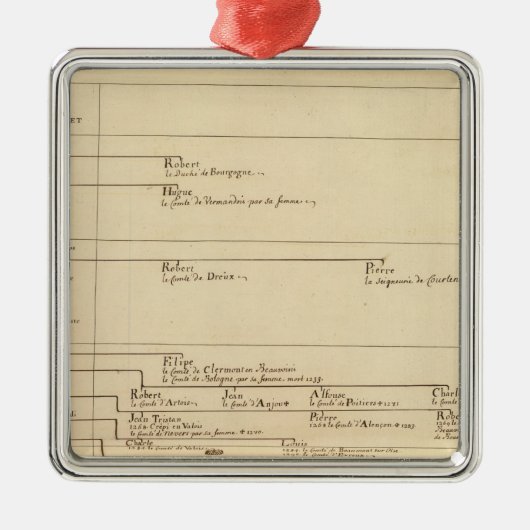 ET
Robert
le Duché de Bourgogne
Hugue
le Comté de Vermandois par sa femme
Robert
le Comté de Dreux
Pierre
la Seigneurie de Courten
Filipe
le Comté de Clermont en Beauvoisis
le Comté de Bologne par sa femme. mort 1233.
Robert Jean Alfonse Charl
le Comté d'Artois le Comté d'Anjou† le Comté de Poitiers †1271 le Com
Jean Tristan Pierre Robe
1268. Crépi en Valois 1268 le Comté d'Alençon †1283. 1269 le
le Comté de Nevers par sa femme. †1270. Beauvois
de Bou
Charle Louis
le Comté de Beaumont sur Oise